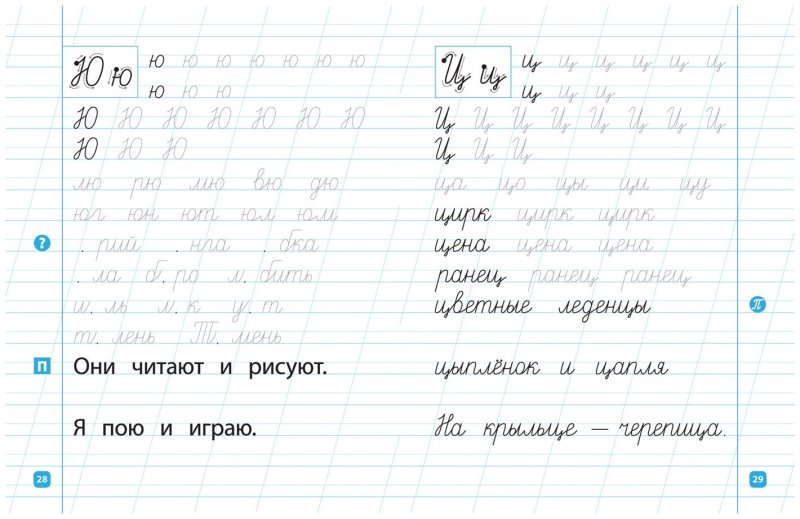 Юю ю ю ю ю ю ю ю
ю ю ю
Ю Ю Ю Ю Ю Ю Ю
Ю Ю Ю
лю рю мю вю дю
юг юн ют юл юм
? . рий . нга . бка
. ла б. ро л. бить
ш. ль л. к у. т
т. лень Т. мень
П Они читают и рисуют.
Я пою и играю.
28
Цц ц ц ц ц ц ц
ц ц ц
Ц Ц Ц Ц Ц Ц Ц Ц
Ц Ц Ц
ца цо цы ци цу
цирк цирк цирк
цена цена цена
ранец ранец ранец
цветные леденцы п
цыплёнок и цапля
На крыльце – черепица.
29